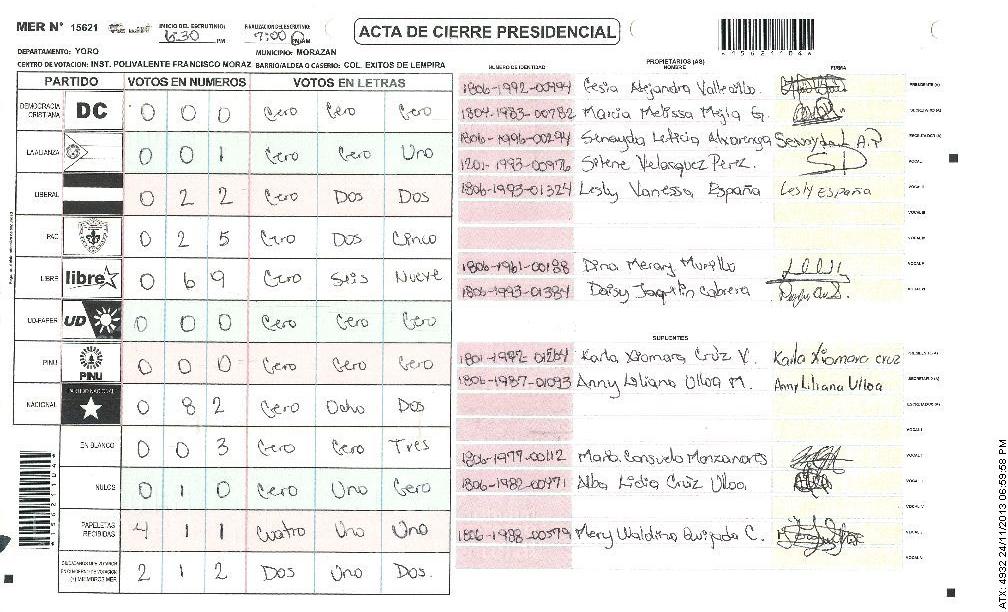 MER N° 15621
INICIO DEL ESCRUTINIO: 6:30 PM
FINALIZACION ESCRUTINIO: 7:00 AM
ACTA DE CIERRE PRESIDENCIAL
DEPARTAMENTO: YORO
MUNICIPIO: MORAZAN
CENTRO DE VOTACION: INST. POLIVALENTE FRANCISCO MORAZ BARRIO/ALDEA O CASERIO: COL. EXITOS DE LEMPIRA
PARTIDO VOTOS EN NUMEROS VOTOS EN LETRAS
DEMOCRACIA CRISTIANA DC 0 0 0 Cero Cero Cero
LA ALIANZA 0 0 1 Cero Cero Uno
LIBERAL 0 2 2 Cero Dos Dos
PAC 0 2 5 Cero Dos Cinco
LIBRE libre 0 6 9 Cero Seis Nueve
UD-FAPER UD 0 0 0 Cero Cero Cero
PINU PINU 0 0 0 Cero Cero Cero
NACIONAL PARTIDO NACIONAL 0 8 2 Cero Ocho Dos
EN BLANCO 0 0 3 Cero Cero Tres
NULOS 0 1 0 Cero Uno Cero
PAPELETAS RECIBIDAS 4 1 1 Cuatro Uno Uno
2 1 2 Dos Uno Dos.
PROPIETARIOS (AS)
NUMERO DE IDENTIDAD NOMBRE FIRMA
1806-1992-00994 Cesia Alejandra PRESIDENTE (A)
1804-1983-00782 Marcia Melissa Mejia G. SECRETARIO (A)
1806-1996-00294 Senayda Leticia Alvarenga Senayda L A.P ESCRUTADOR (A)
1201-1993-00976 Selene Velasquez Perez. VOCAL I
1806-1993-01324 Lesly Vanessa España Lesly España VOCAL II
VOCAL III
VOCAL IV
1806-1961-00188 Dina Merary Murillo VOCAL V
1806-1993-01384 Daisy Jaquelin Cabrera VOCAL VI
SUPLENTES
1801-1992-01264 Karla Xiomara Cruz V. Karla Xiomara Cruz PRESIDENTE (A)
1806-1987-01093 Anny Liliana Ulloa M. Anny Liliana Ulloa SECRETARIO (A)
ESCRUTADOR (A)
VOCAL I
1806-1977-00112 Maria Consuelo Monzanares
1806-1982-00971 Alba Lidia Cruz Ulloa
VOCAL IV
1806-1988-00579 Mery Waldina C.
ATX: 4932 24/11/2013 06:59:58 PM